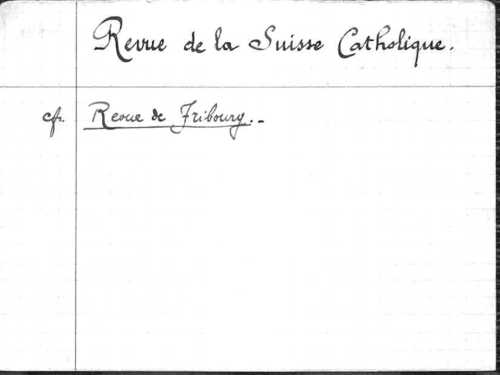 Revue de la Suisse Catholique.
cfr. Revue de Fribourg.-